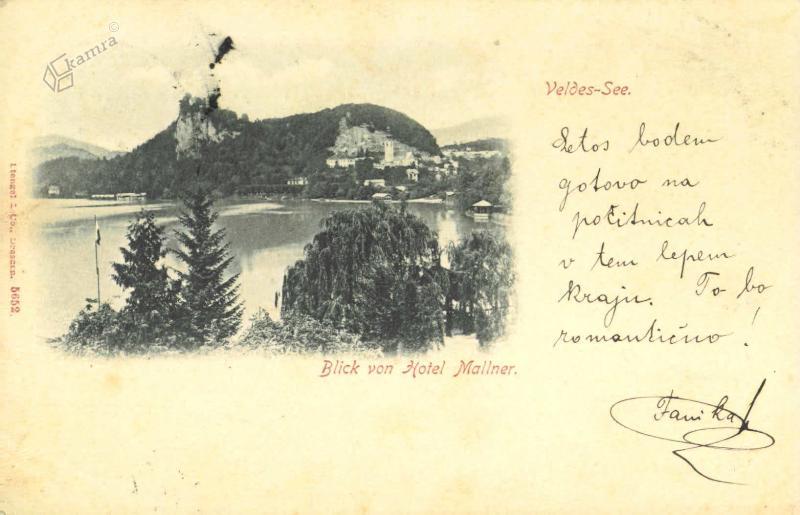 kamra ©
Veldes-See.
Letos bodem
gotovo na
počitnicah
v tem lepem
kraju. To bo
romantično!
Fanika
Blick von Hotel Mallner.
Stengel & Co., Dresden. 5652.